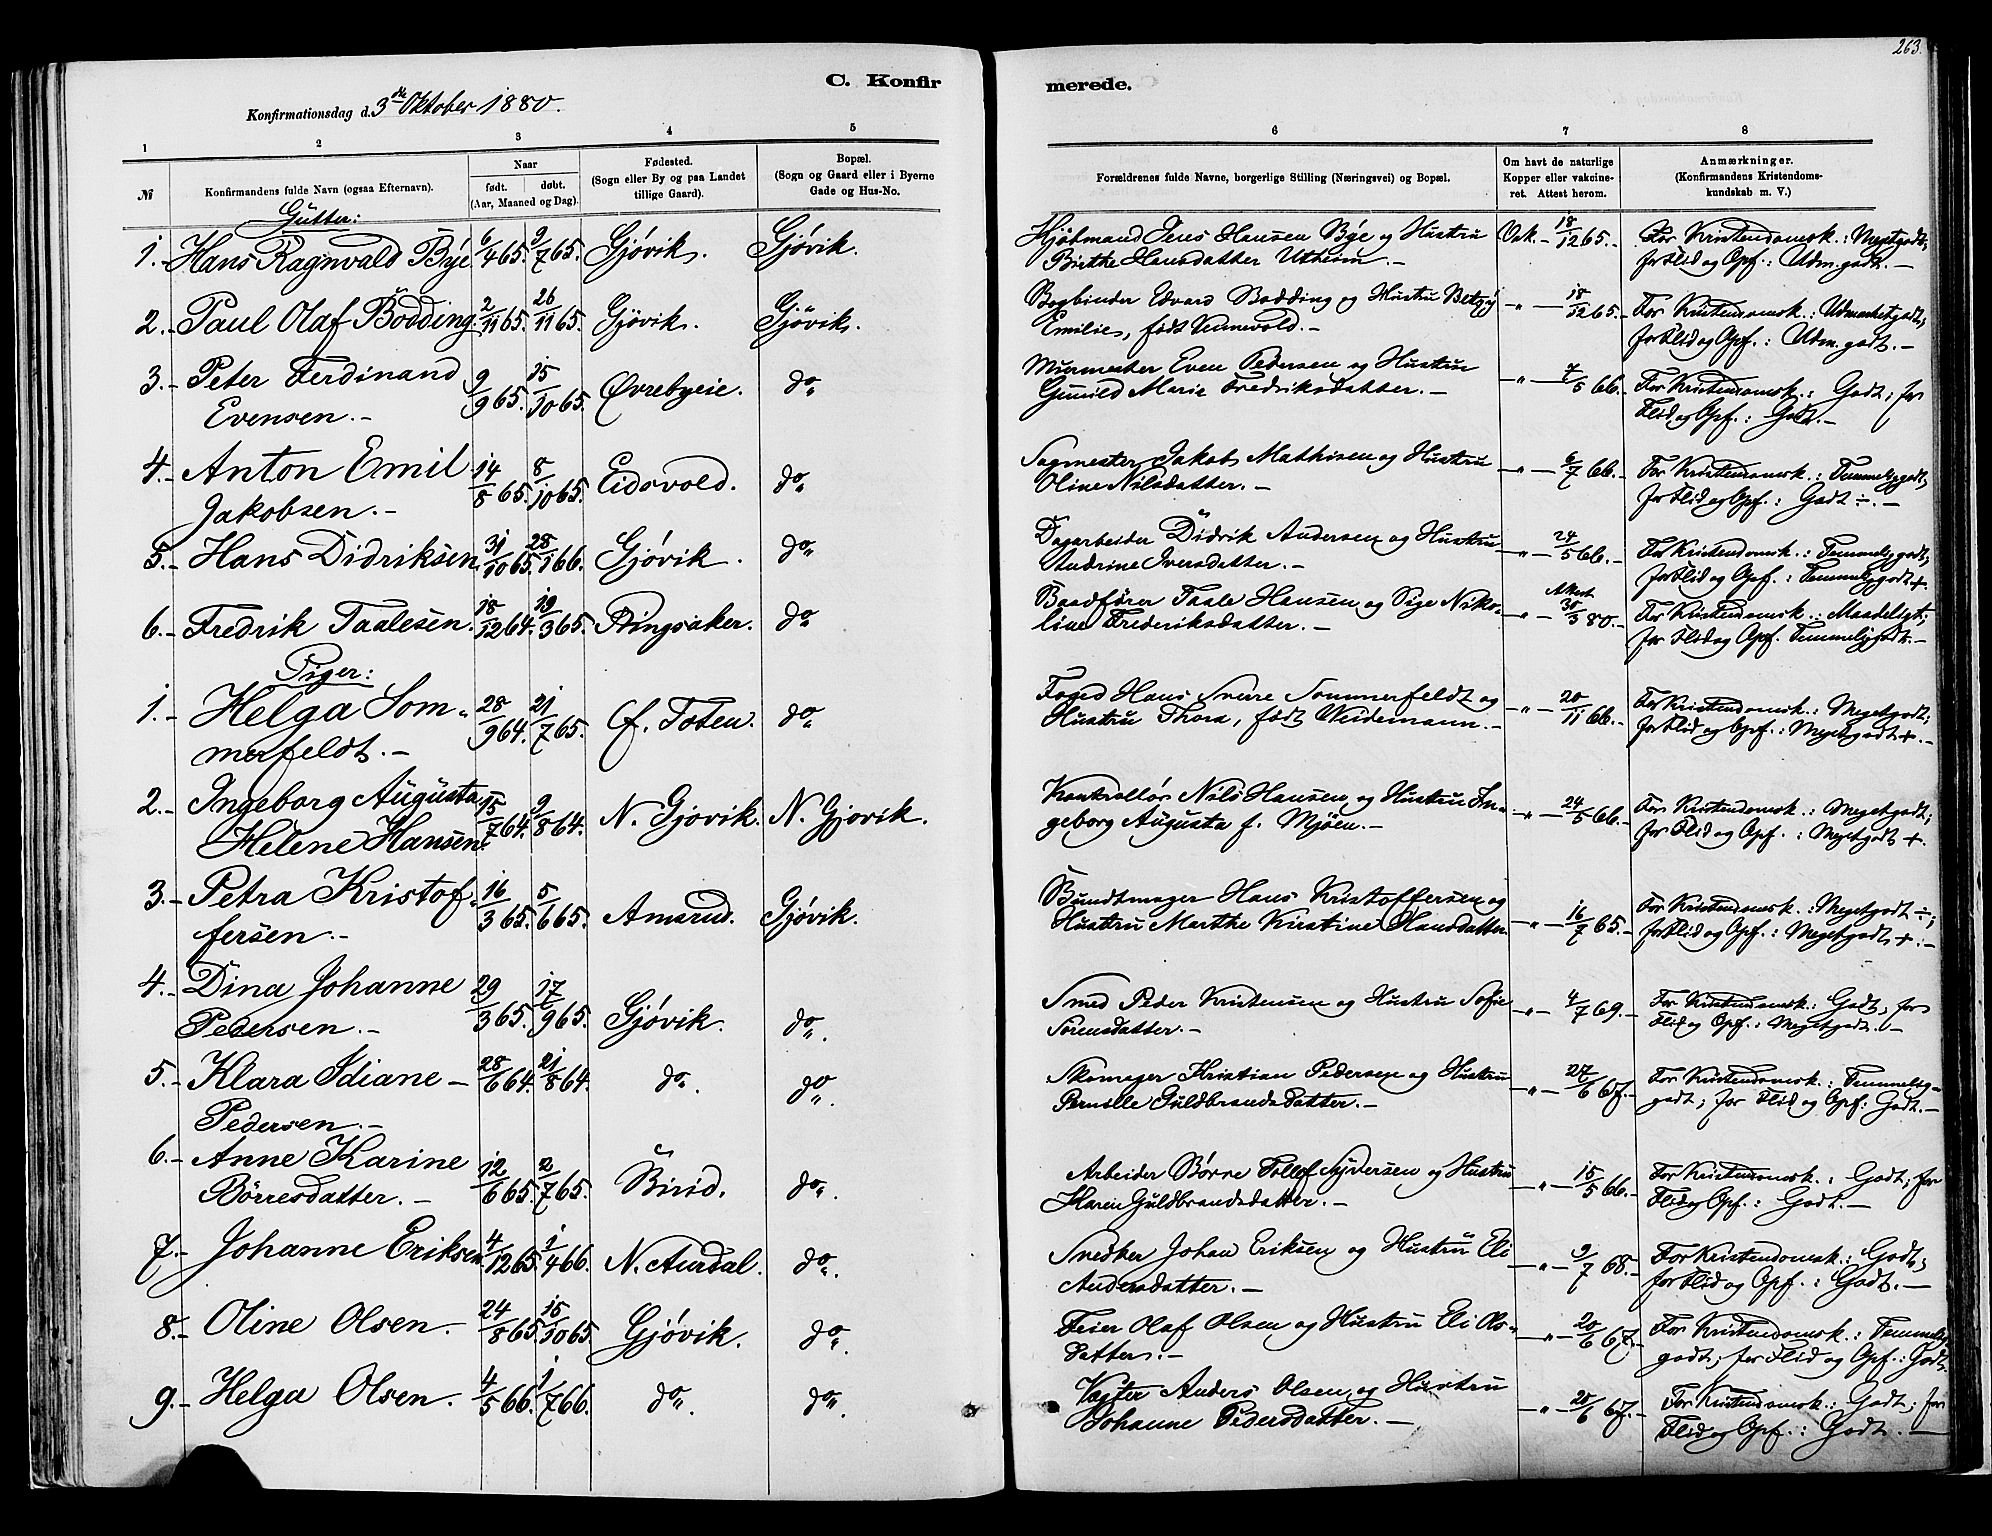 263.
C. Konfirmerede.
Konfirmationsdag d. 3die Oktober 1880.
1 2 3 4 5 6 7 8
№ Konfirmandens fulde Navn (ogsaa Efternavn). Naar født. døbt. (Aar, Maaned og Dag). Fødested. (Sogn eller By og paa Landet tillige Gaard). Bopæl. (Sogn og Gaard eller i Byerne Gade og Hus-No. Forældrenes fulde Navne, borgerlige Stilling (Næringsvei) og Bopæl. Om havt de naturlige Kopper eller vakcineret. Attest herom. Anmærkninger. (Konfirmandens Kristendomskundskab m. V.)
Gutter:
1.- Hans Ragnvald Bye 6/4 65. 9/7 65. Gjøvik. Gjøvik. Hjulmand Jens Hansen Bye og Hustru Vak. - 18/12 65.- For Kristendomsk.: Megetgodt;
Birthe Hansdatter Utheim.- for Flid og Opf.: Udm.godt.-
2.- Paul Olaf Bødding. 2/11 65. 26/11 65. Gjøvik. Gjøvik. Bogbinder Edvard Bødding og Hustru Betzy „ - 18/12 65.- For Kristendomsk.: Udmærketgodt;
Emilie, født Vennevold.- for Flid og Opf.: Udm.godt.-
3.- Peter Ferdinand 9/9 65. 15/10 65. Øvrebyeie. do„ Murmester Even Pedersen og Hustru -„- 7/5 66.- For Kristendomsk.: Godt; for
Evensen.- Gunild Marie Fredriksdatter.- Flid og Opf.: Godt.-
4.- Anton Emil 14/8 65. 8/10 65. Eidsvold. do„ Sagmester Jakob Mathisen og Hustru -„- 6/7 66.- For Kristendomsk.: Temmeliggodt;
Jakobsen.- Oline Nilsdatter.- for Flid og Opf.: Godt ÷.-
5.- Hans Didriksen. 31/10 65. 28/1 66. Gjøvik. do„ Dagarbeider Didrik Andersen og Hustru -„- 24/5 66.- For Kristendomsk.: Temmeliggodt;
Andrine Iversdatter.- for Flid og Opf.: Temmeliggodt+.
6.- Fredrik Taalesen. 18/12 64. 19/3 65. Ringsaker. do„ Baadfører Taale Hansen og Pige Niko- -„- Attest 30/3 80.- For Kristendomsk.: Maadeligt;
line Frederiksdatter.- for Flid og Opf. Temmeliggodt.-
Piger:
1.- Helga Som- 28/9 64. 21/7 65. Ø. Toten. do„ Foged Hans Sverre Sommerfeldt og -„- 20/11 66.- For Kristendomsk.: Megetgodt;
merfeldt.- Hustru Thora, født Weidemann.- for Flid og Opf.: Megetgodt+.-
2.- Ingeborg Augusta 15/7 64. 9/8 64. N. Gjøvik. N. Gjøvik. Kontrollør Nils Hansen og Hustru In- -„- 24/5 66.- For Kristendomsk.: Megetgodt;
Helene Hansen. geborg Augusta f. Mjøen.- for Flid og Opf.: Megetgodt+.
3.- Petra Kristof- 16/3 65. 5/6 65. Amsrud. Gjøvik. Bundtmager Hans Kristoffersen og -„- 16/7 65.- For Kristendomsk.: Megetgodt÷;
fersen.- Hustru Marthe Kirstine Hansdatter. for Flid og Opf.: Megetgodt+.-
4.- Dina Johanne 29/3 65. 17/9 65. Gjøvik. do„. Smed Peder Kristensen og Hustru Sofie -„- 4/7 69.- For Kristendomsk.: Godt; for
Pedersen.- Sørensdatter.- Flid og Opf.: Megetgodt.-
5.- Klara Idiane- 28/6 64. 21/8 64. do„. do„. Skomager Kristian Pedersen og Hustru -„- 27/6 67.- For Kristendomsk.: Temmelig-
Pedersen.- Pernille Guldbrandsdatter.- godt; for Flid og Opf: Godt.-
6.- Anne Karine 12/6 65. 2/7 65. Birid. do„. Arbeider Børre Tollef Syversen og Hustru -„- 15/5 66.- For Kristendomsk.: Godt; for
Børresdatter.- Karen Guldbrandsdatter.- Flid og Opf.: Godt.-
7.- Johanne Eriksen. 4/12 65. 1/4 66. N. Aurdal. do„. Snedker Johan Eriksen og Hustru Eli -„- 9/7 68.- For Kristendomsk.: Godt;
Andersdatter.- for Flid og Opf.: Godt.-
8.- Oline Olsen. 24/8 65. 15/10 65. Gjøvik. do„. Feier Olaf Olsen og Hustru Eli Ols- -„- 20/6 67.- For Kristendomsk.: Temmelig
datter.- godt; for Flid og Opf.: Godt.
9.- Helga Olsen. 4/5 66. 1/7 66. do„. do„. Vægter Anders Olsen og Hustru -„- 20/6 67.- For Kristendomsk.: Godt; for
Johanne Pedersdatter.- Flid og Opf.: Godt.-